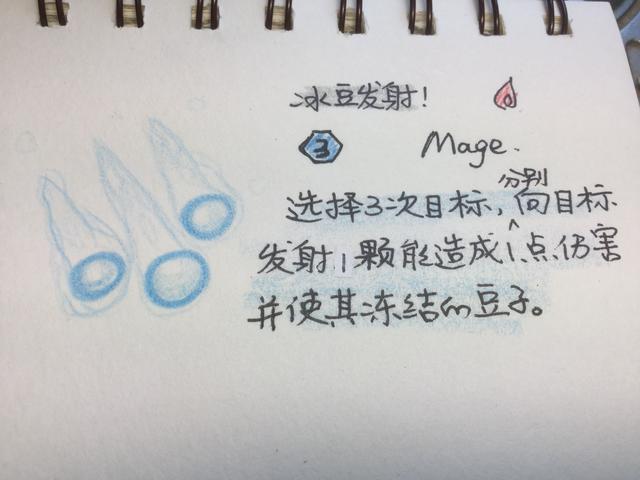 冰豆发射！
0
3
Mage.
选择3次目标，分别向目标
发射1颗能造成1点伤害
并使其冻结的豆子。